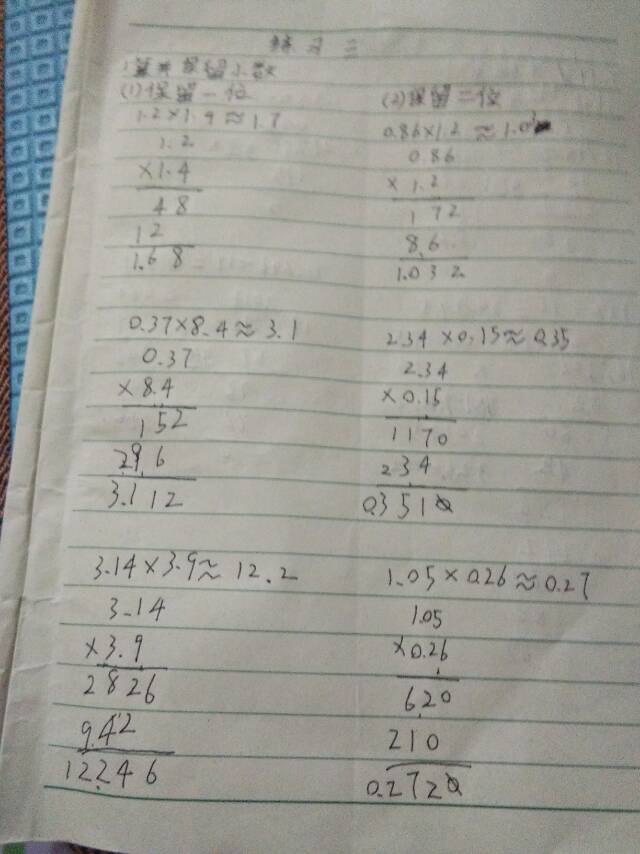 练习三
1.算并保留小数
(1)保留一位
1.2×1.4≈1.7
1.2
×1.4
48
12
1.68
0.37×8.4≈3.1
0.37
×8.4
152
296
3.112
3.14×3.9≈12.2
3.14
×3.9
2826
942
12.246
(2)保留二位
0.86×1.2≈1.03
0.86
×1.2
172
86
1.032
2.34×0.15≈0.35
2.34
×0.15
1170
234
0.3510
1.05×0.26≈0.27
1.05
×0.26
620
210
0.2720